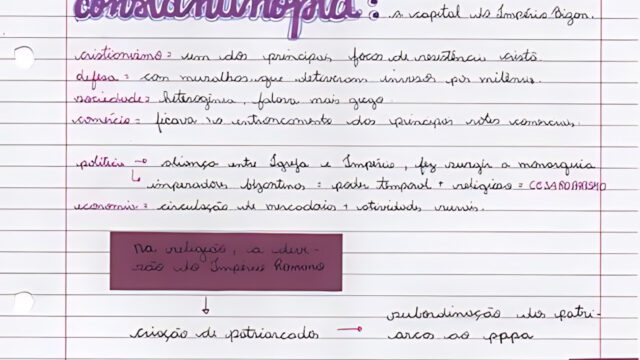 constantinopla: a capital do Império Bizan.
cristianismo = um dos principais focos de resistência cristã
defesa = com muralhas que detiveram invasor por milênio.
sociedade = heterogênia, falava mais grego
comércio = ficava no entroncamento das principais rotas comerciais.
política → aliança entre Igreja e Império, fez surgir a monarquia
↳ imperadores bizantinos = poder temporal + religioso = CESAROPAPISMO
economia = circulação de mercadorias + atividades rurais.
na religião, a divi-
são do Império Romano
criação de patriarcados → subordinação dos patri-
arcas ao papa